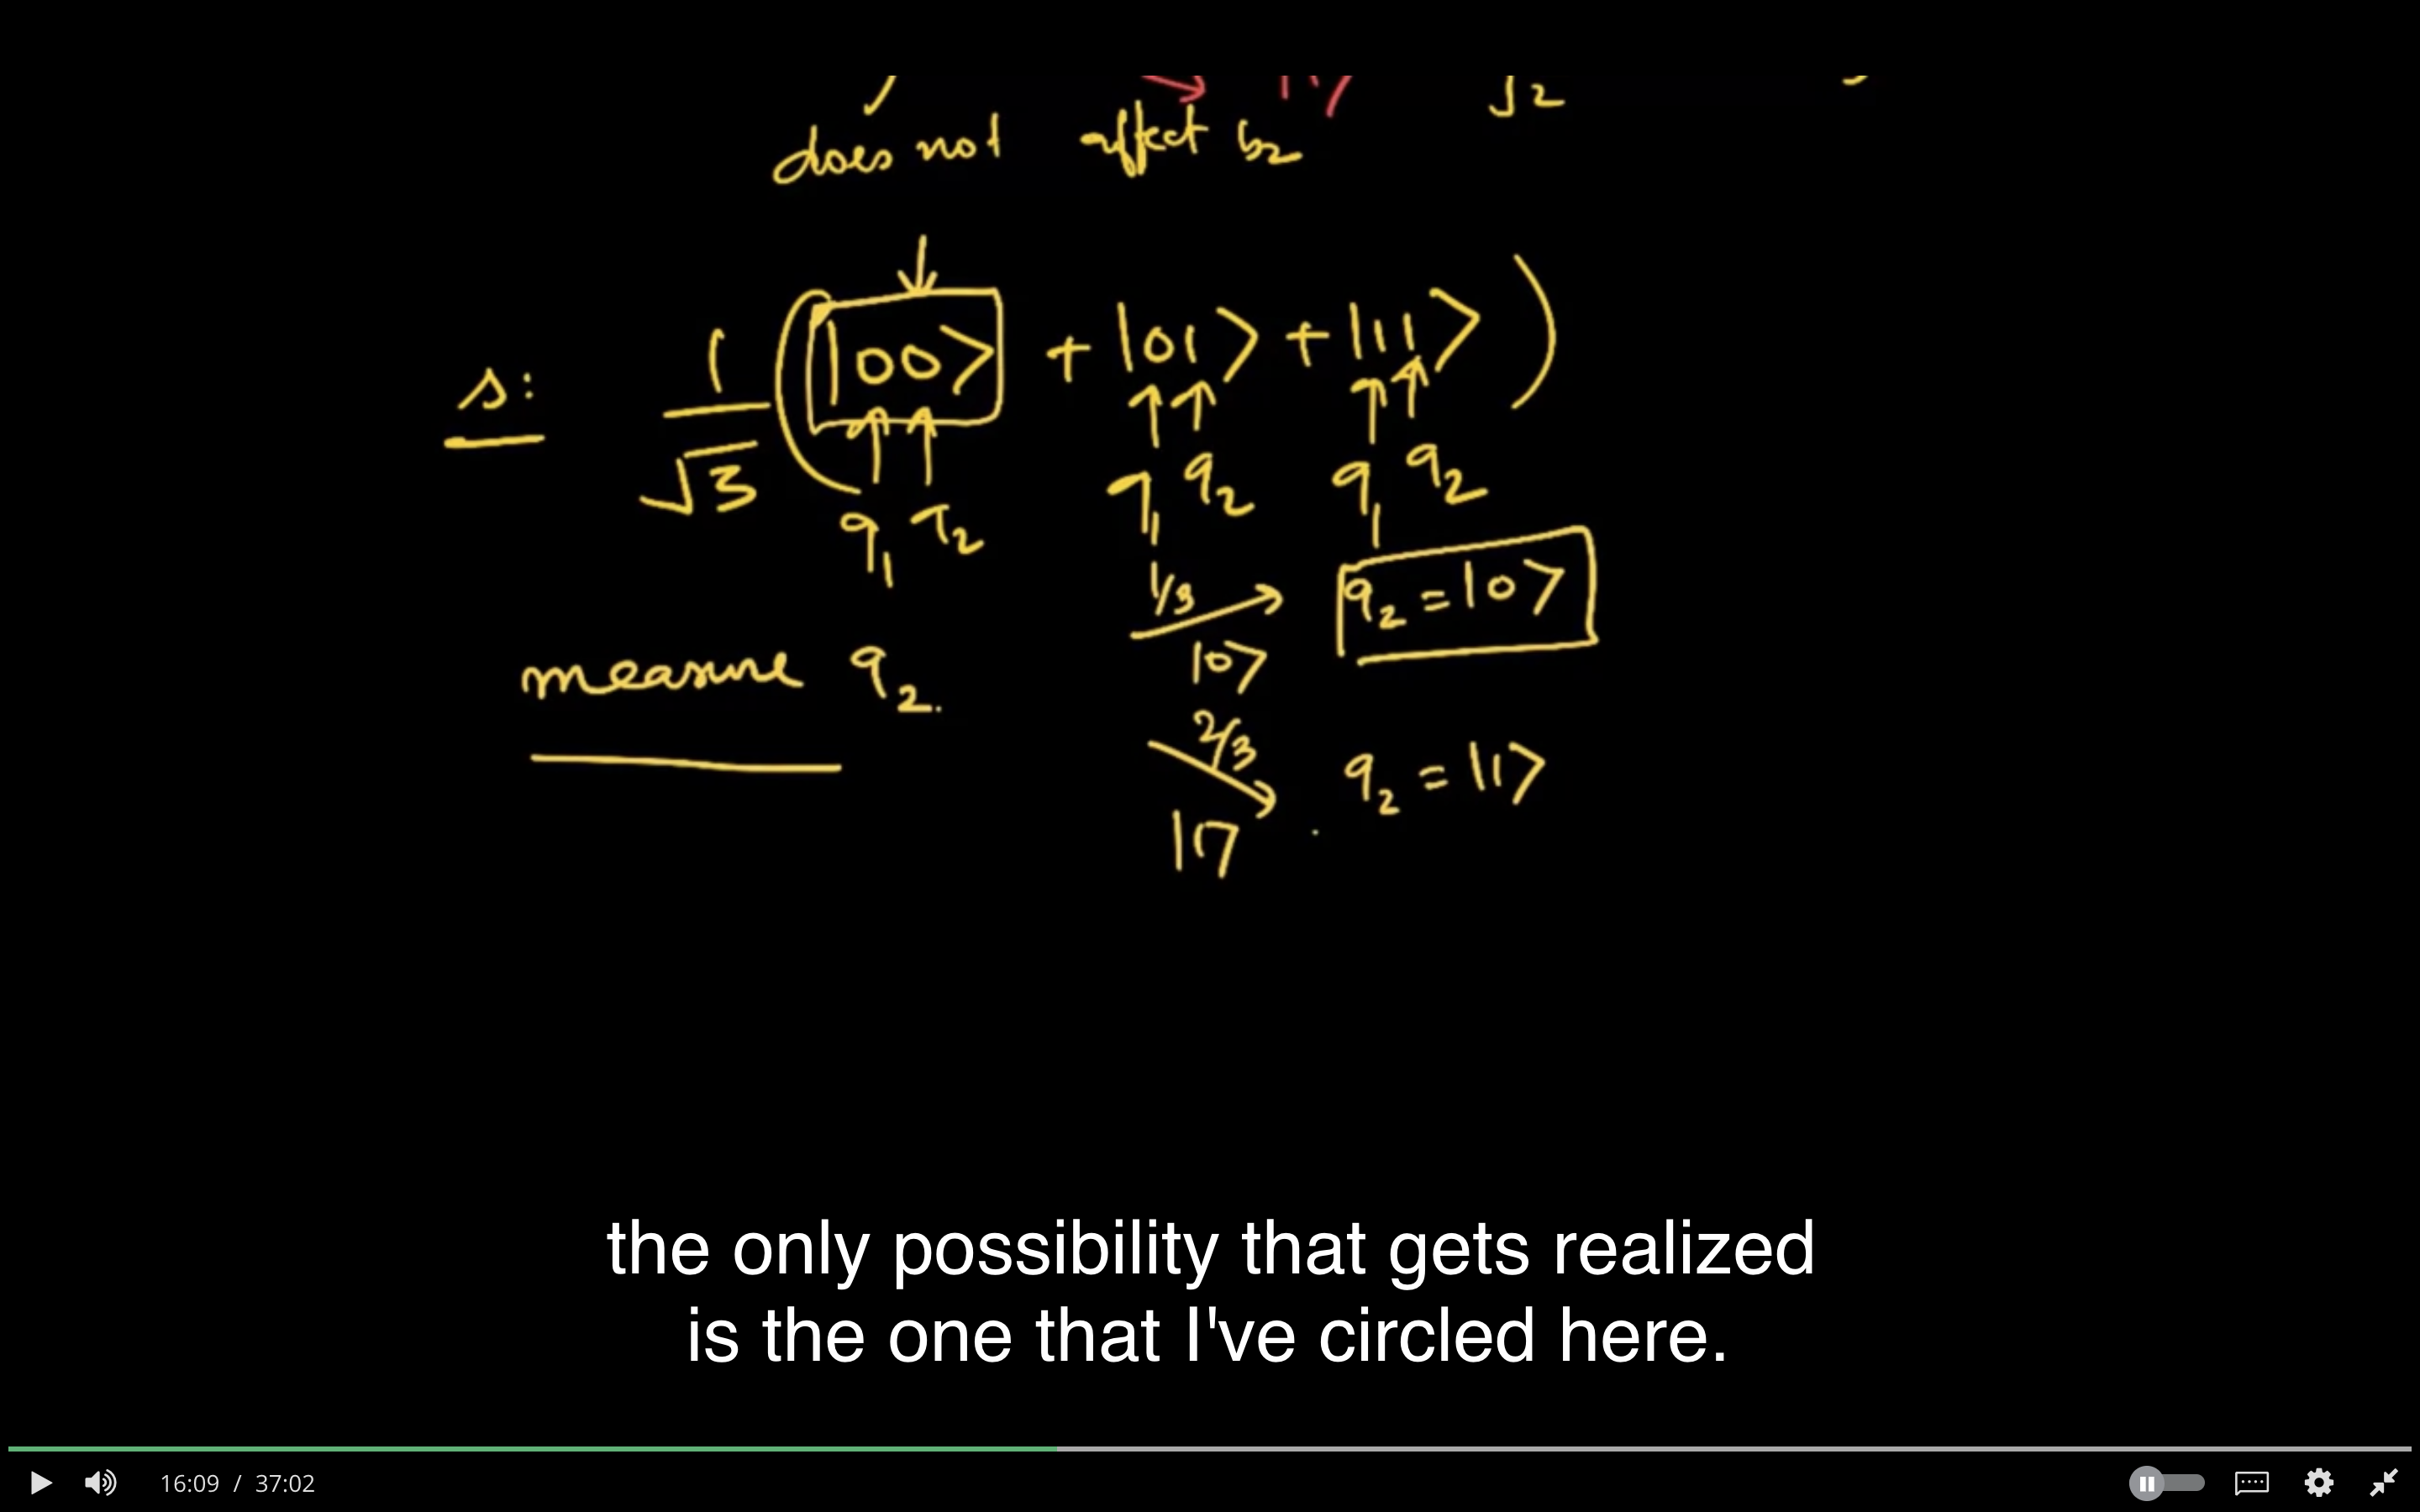 does not affect b2
s: 1/√3 ( |00> + |01> + |11> )
q1 q2 q1 q2 q1 q2
1/3 q2 = |0>
|0>
measure q2.
2/3 q2 = |1>
|1>
the only possibility that gets realized
is the one that I've circled here.
16:09 / 37:02